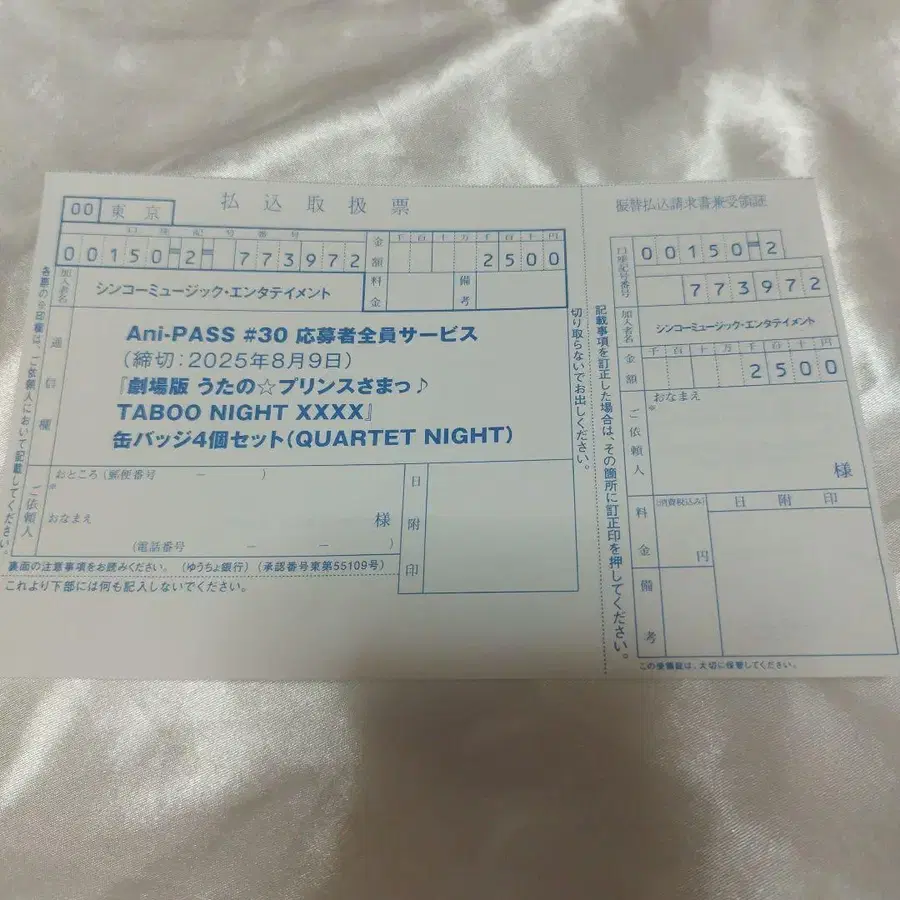 00 東京
払込取扱票
口座記号番号
00150-2-773972
金額
千百十万千百十円
2500
加入者名
シンコーミュージック・エンタテイメント
料金
備考
通信欄
Ani-PASS #30 応募者全員サービス
(締切:2025年8月9日)
『劇場版 うたの☆プリンスさまっ♪
TABOO NIGHT XXXX』
缶バッジ4個セット(QUARTET NIGHT)
ご依頼人
おところ(郵便番号 － )
※
おなまえ
様
(電話番号 － － )
日附印
裏面の注意事項をお読みください。(ゆうちょ銀行)(承認番号東第55109号)
これより下部には何も記入しないでください。
各票の※印欄は、ご依頼人において記載してください。
切り取らないでお出しください。
記載事項を訂正した場合は、その箇所に訂正印を押してください。
振替払込請求書兼受領証
口座記号番号
00150-2
773972
加入者名
シンコーミュージック・エンタテイメント
金額
千百十万千百十円
2500
ご依頼人
おなまえ
※
様
料金
(消費税込み)
円
日附印
備考
この受領証は、大切に保管してください。